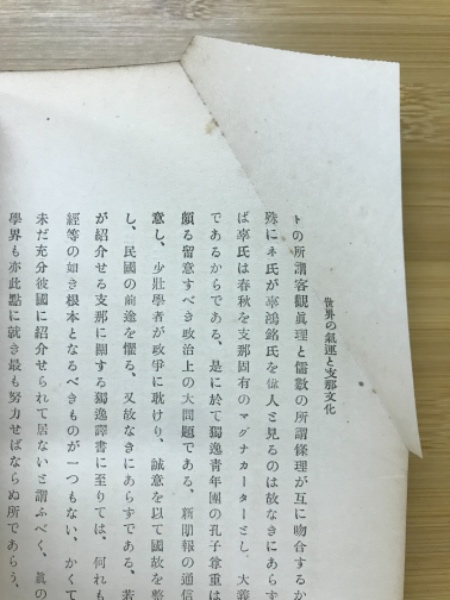 世界の氣運と支那文化
トの所謂客觀眞理と儒敎の所謂條理が互に吻合するか
殊にネ氏が辜鴻銘氏を偉人と見るのは故なきにあらす
ば辜氏は春秋を支那固有のマグナカーターとし、大義
であるからである、是に於て獨逸靑年團の孔子尊重は
頗る留意すべき政治上の大問題である、新聞報の通信
意し、少壯學者が政爭に耽けり、誠意を以て國故を整
し、民國の前途を懼る、又故なきにあらすである、若
が紹介せる支那に關する獨逸譯書に至りては、何れも
經等の如き根本となるべきものが一つもない、かくて
未だ充分彼國に紹介せられて居ないと謂ふべく、眞の
學界も亦此點に就き最も努力せばならぬ所であらう、